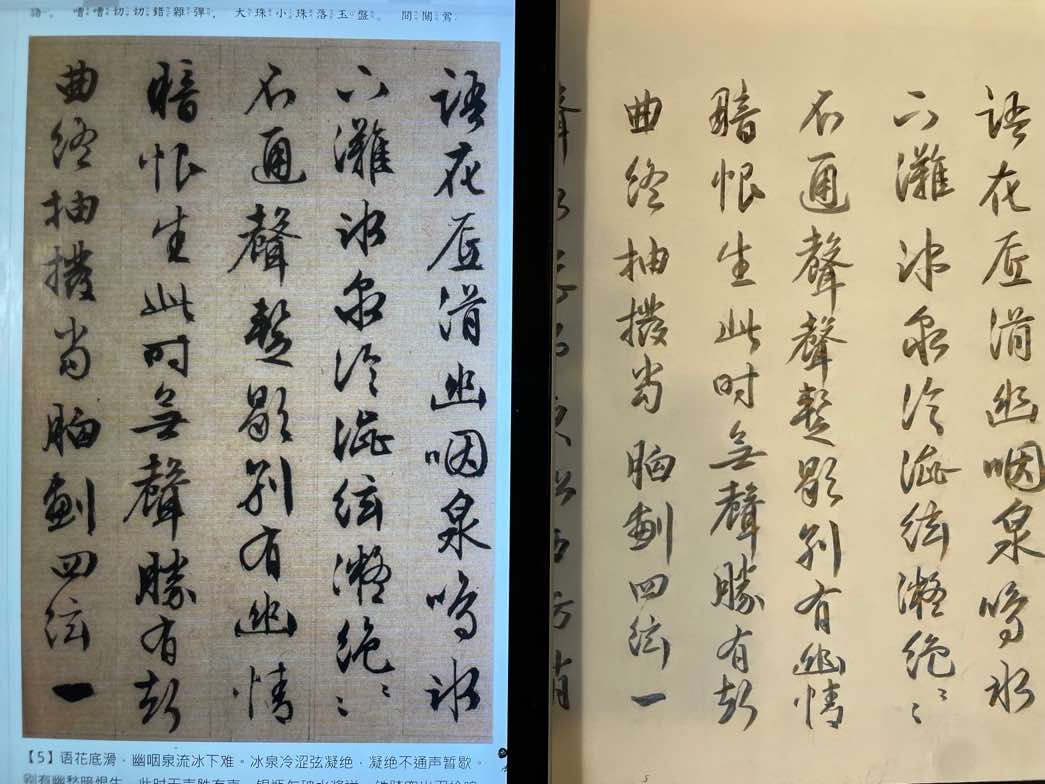 語。嘈嘈切切錯雜彈,大珠小珠落玉盤。間關鶯
語花底滑幽咽泉鳴水
下灘冰泉冷澁絃凝絕〻
不通聲暫歇別有幽情
暗恨生此时無聲勝有
曲終抽撥當胸劃四絃一
【5】语花底滑,幽咽泉流冰下难。冰泉冷涩弦凝绝,凝绝不通声暂歇。
別有幽愁暗恨生,此时无声胜有声。
語花底滑幽咽泉鳴水
下灘冰泉冷澁絃凝絕〻
不通聲聲暫歇別有幽情
暗恨生此时無聲勝有
曲終抽撥當胸劃四絃一